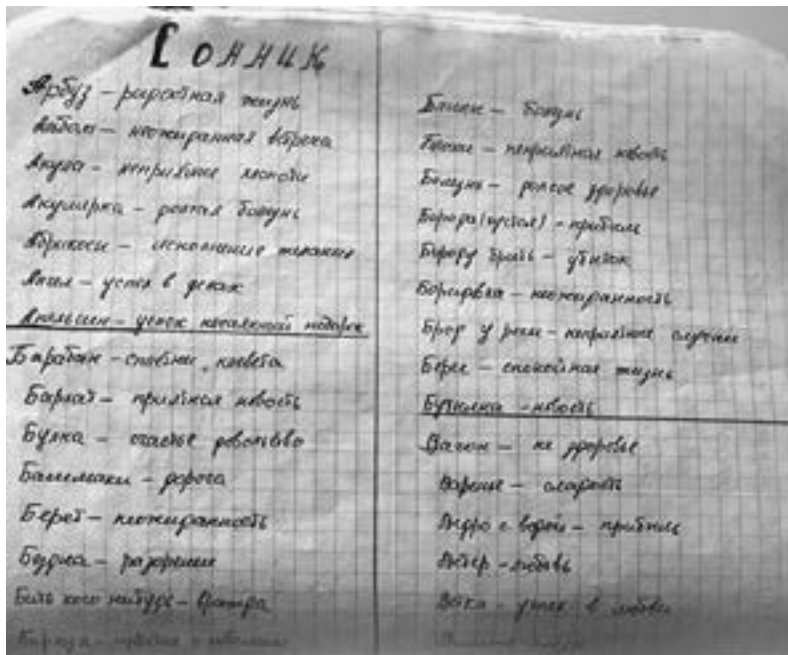 Сонник
Арбуз – радостная жизнь
Альбом – неожиданная встреча
Акула – неприятные хлопоты
Акушерка – болезнь
Абрикосы – исполнение желания
Ангел – успех в делах
Апельсин – успех нежданный подарок
Барабан – сплетни, клевета
Бархат – приятная новость
Булка – счастье довольство
Башмаки – дорога
Берет – неожиданность
Будка – разорение
Бить кого нибудь –
Блины – болезнь
Блохи – неприятная новость
Болезнь – долгое здоровье
Борода (густая) – прибыль
Бороду брить – убыток
Бородавка – неожиданность
у реки – неприятные случаи
Берег – спокойная жизнь
Бутылка – новость
Вагон – не здоровье
Варенье – сладость
Ведро с водой – прибыль
Ветер – любовь
– успех в любви